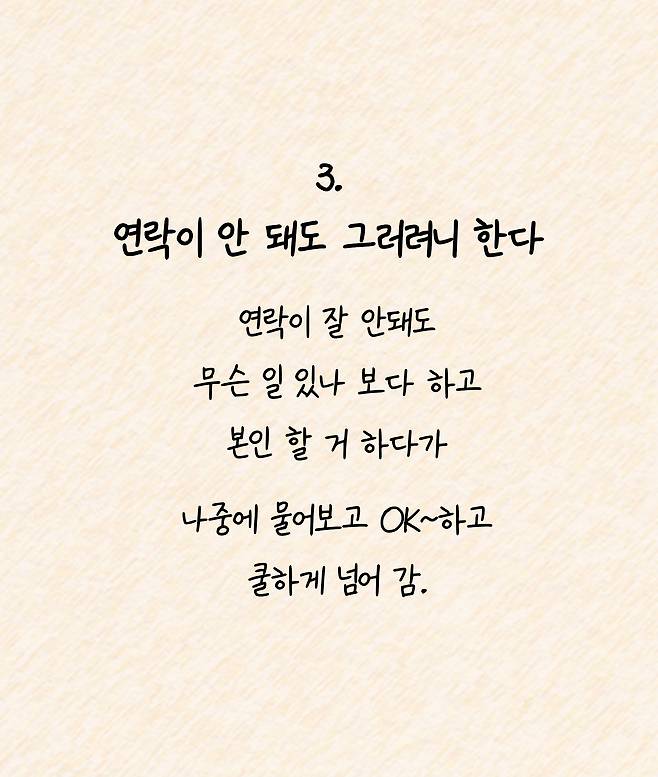 3.
연락이 안 돼도 그러려니 한다
연락이 잘 안돼도
무슨 일 있나 보다 하고
본인 할 거 하다가
나중에 물어보고 OK~하고
쿨하게 넘어 감.